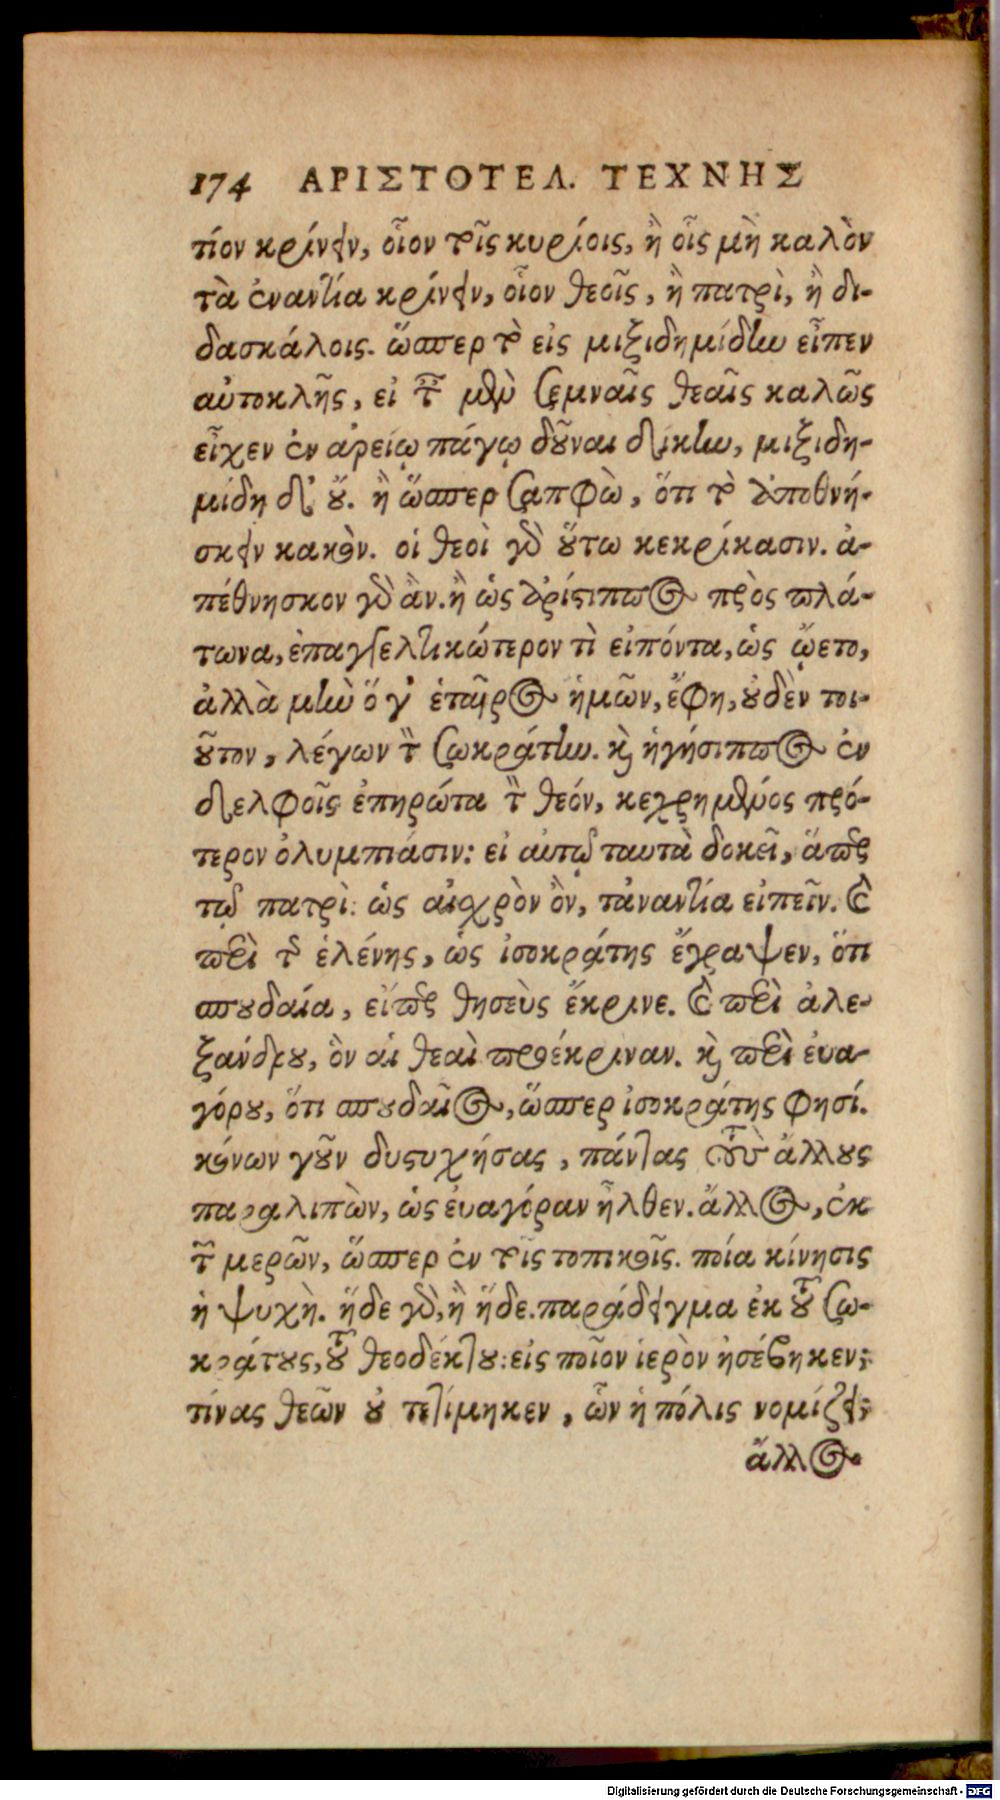 174 ΑΡΙΣΤΟΤΕΛ. ΤΕΧΝΗΣ
τίον κρίνειν, οἷον τοῖς κυρίοις, ἢ οἷς μὴ καλὸν
τὰ ἐναντία κρίνειν, οἷον θεοῖς, ἢ πατρὶ, ἢ δι-
δασκάλοις. ὥσπερ τὸ εἰς μιξιδημίδην εἶπεν
αὐτοκλῆς, εἰ ταῖς μὲν σεμναῖς θεαῖς καλῶς
εἶχεν ἐν ἀρείῳ πάγῳ δοῦναι δίκην, μιξιδη-
μίδη δ' οὔ. ἢ ὥσπερ σαπφὼ, ὅτι τὸ ἀποθνή-
σκειν κακόν. οἱ θεοὶ γὰρ οὕτω κεκρίκασιν. ἀ-
πέθνησκον γὰρ ἄν. ἢ ὡς ἀρίστιππος πρὸς πλά-
τωνα, ἐπαγγελτικώτερον τὶ εἰπόντα, ὡς ᾤετο,
ἀλλὰ μὴν ὅ γ' ἑταῖρος ἡμῶν, ἔφη, οὐδὲν τοι-
οῦτον, λέγων τὸν σωκράτην. καὶ ἡγήσιππος ἐν
δελφοῖς ἐπηρώτα τὸν θεόν, κεχρημένος πρό-
τερον ὀλυμπιάσιν: εἰ αὐτῷ ταυτὰ δοκεῖ, ἅπερ
τῷ πατρὶ: ὡς αἰσχρὸν ὂν, τἀναντία εἰπεῖν. καὶ
περὶ τῆς ἑλένης, ὡς ἰσοκράτης ἔγραψεν, ὅτι
σπουδαία, εἴπερ θησεὺς ἔκρινε. καὶ περὶ ἀλε-
ξάνδρου, ὃν αἱ θεαὶ προέκριναν. καὶ περὶ ἐυα-
γόρου, ὅτι σπουδαῖος, ὥσπερ ἰσοκράτης φησί.
κόνων γοῦν δυστυχήσας, πάντας τοὺς ἄλλους
παραλιπὼν, ὡς ἐυαγόραν ἦλθεν. ἄλλος, ἐκ
τῶν μερῶν, ὥσπερ ἐν τοῖς τοπικοῖς. ποία κίνησις
ἡ ψυχὴ. ἥδε γὰρ, ἢ ἥδε. παράδειγμα ἐκ τοῦ σω-
κράτους, τοῦ θεοδέκτου: εἰς ποῖον ἱερὸν ἠσέβηκεν;
τίνας θεῶν οὐ τετίμηκεν, ὧν ἡ πόλις νομίζει;
ἄλλος
Digitalisierung gefördert durch die Deutsche Forschungsgemeinschaft - DFG